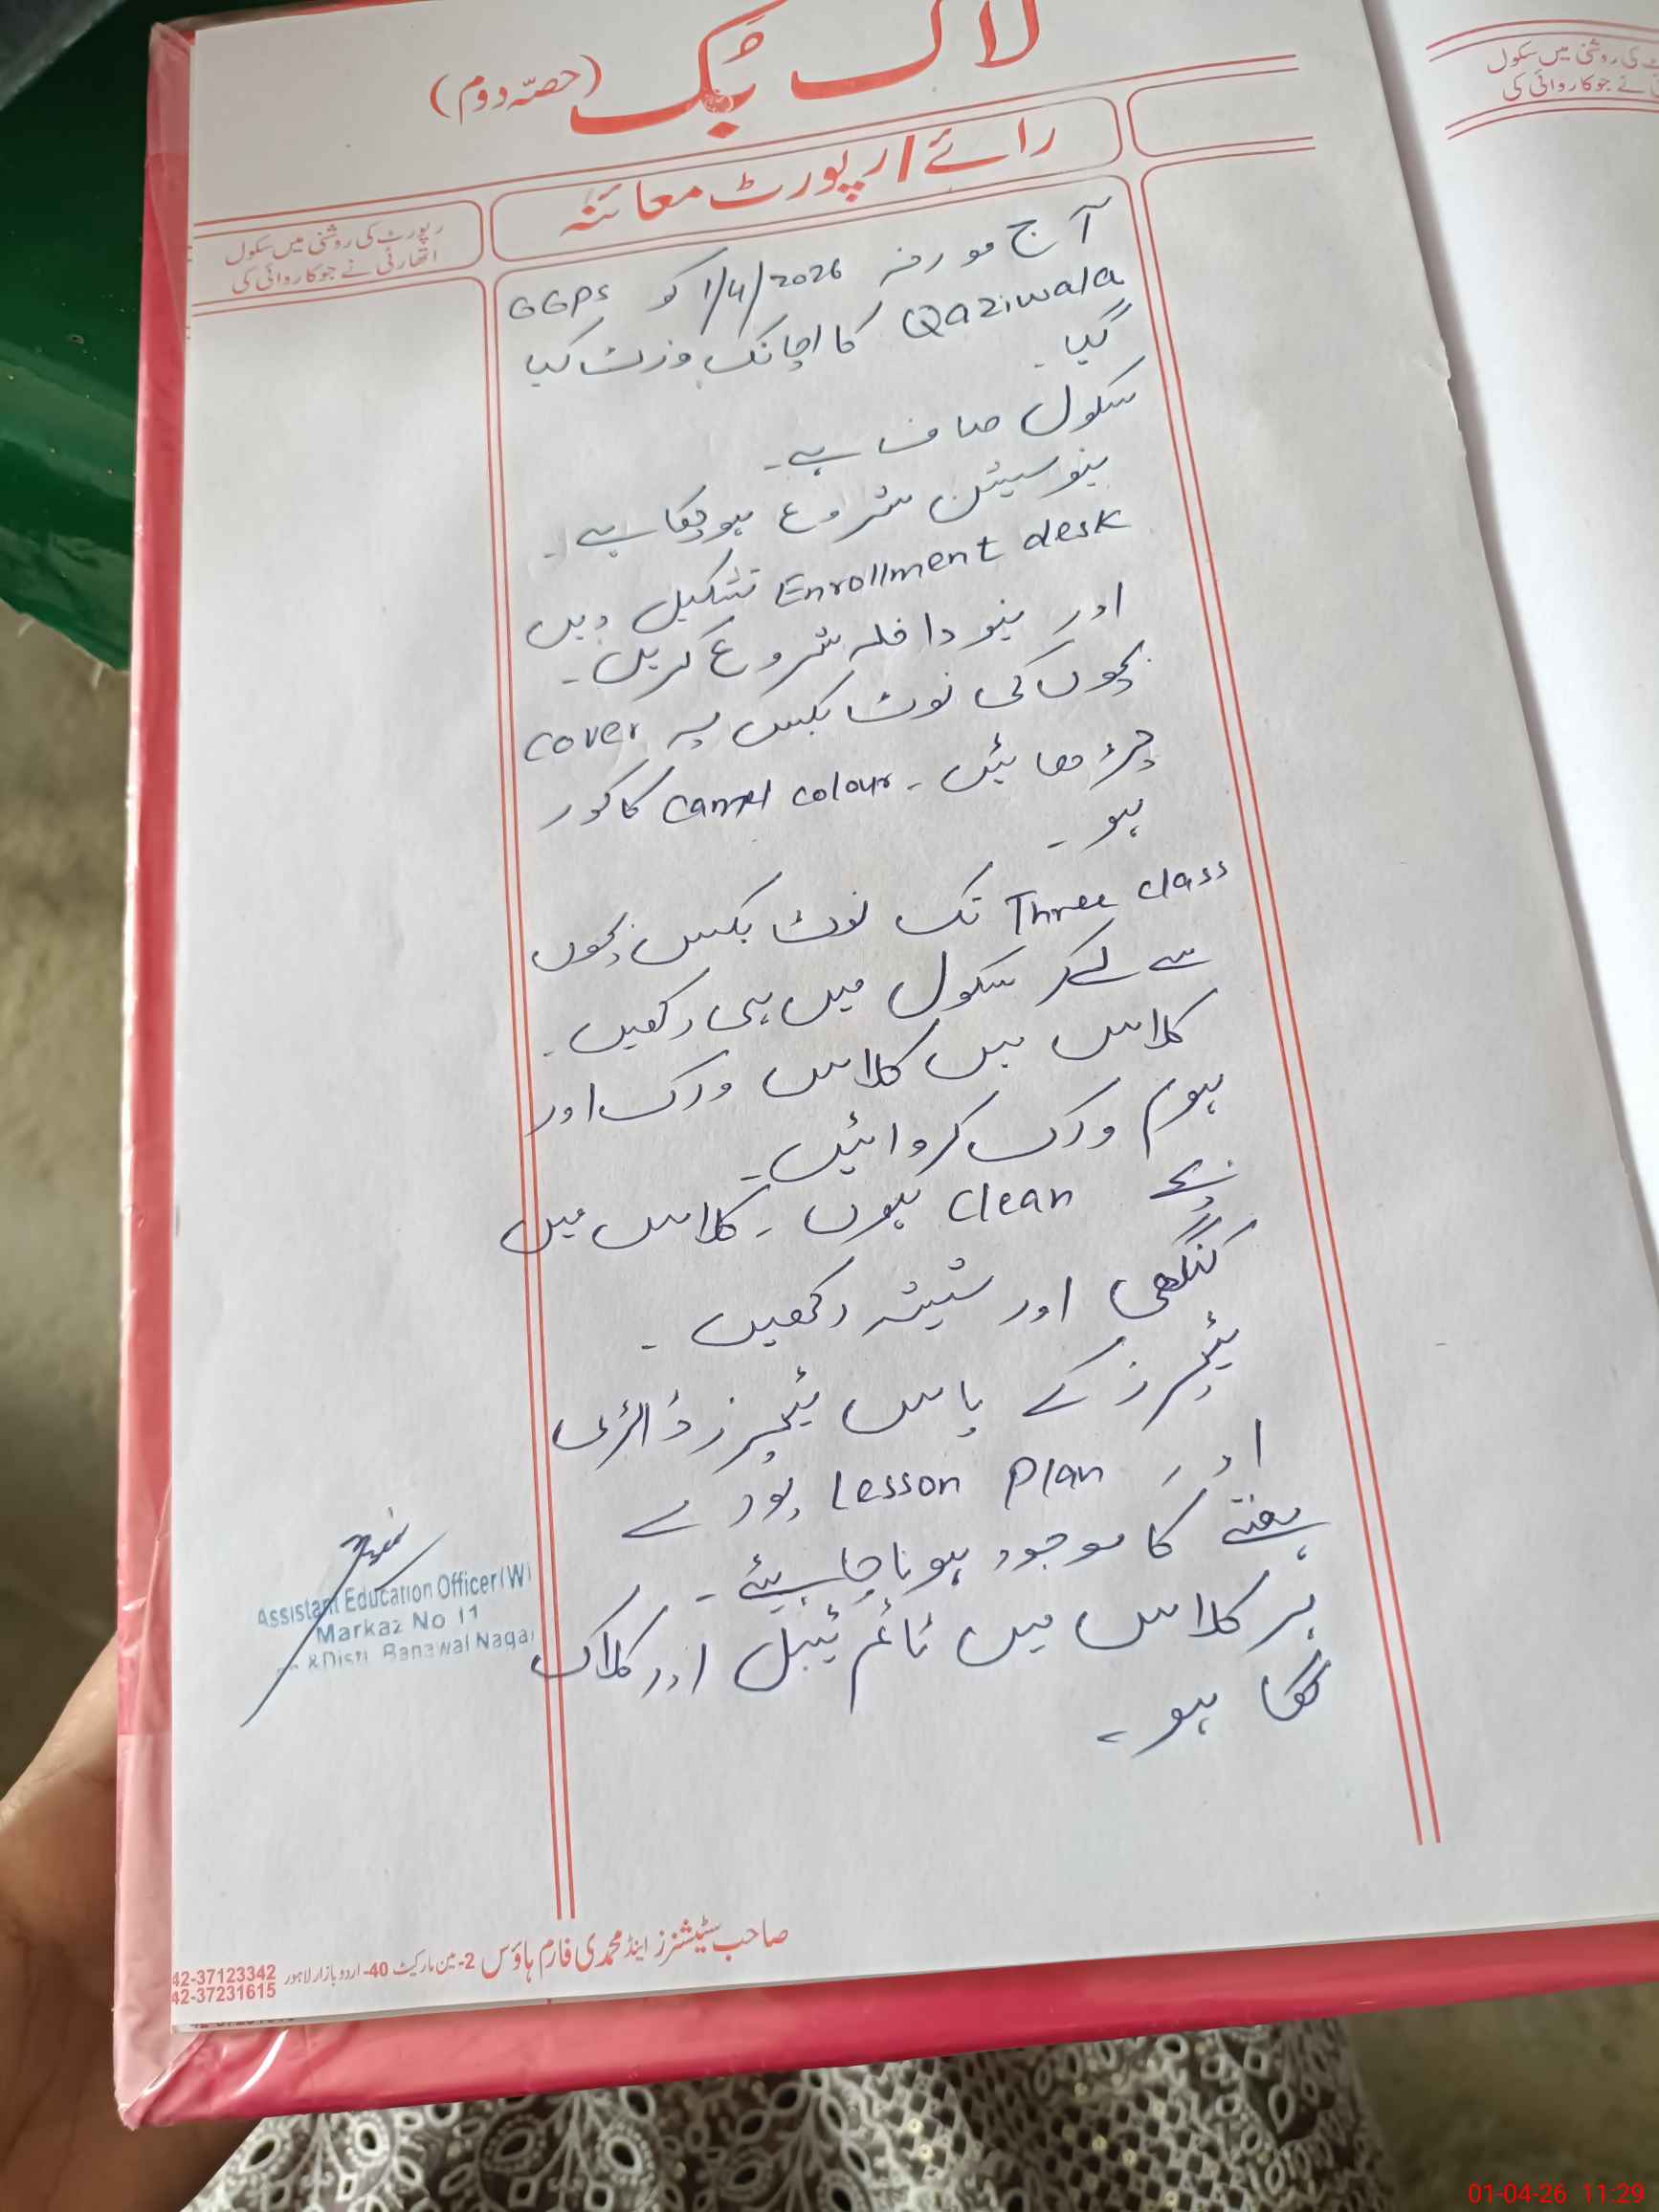 لاگ بُک (حصّہ دوم)
رائے / رپورٹ معائنہ
رپورٹ کی روشنی میں سکول
اتھارٹی نے جو کاروائی کی
آج مورخہ 1/4/2026 کو GGPS
Qaziwala کا اچانک وزٹ کیا
گیا۔
سکول صاف ہے۔
نیو سیشن شروع ہو چکا ہے۔
Enrollment desk تشکیل دیں
اور نیو داخلہ شروع کریں۔
بچوں کی نوٹ بکس پہ cover
چڑھائیں۔ camel colour کا کور
ہو۔
Three class تک نوٹ بکس بچوں
سے لے کر سکول میں ہی رکھیں۔
کلاس میں کلاس ورک اور
ہوم ورک کروائیں۔
بچے clean ہوں۔ کلاس میں
کنگھی اور شیشہ رکھیں۔
ٹیچرز کے پاس ٹیچرز ڈائری
اور Lesson Plan پورے
ہفتے کا موجود ہونا چاہیئے۔
ہر کلاس میں ٹائم ٹیبل اور کلاک
لگا ہو۔
Assistant Education Officer (W)
Markaz No 11
& Distt. Bahawal Nagar
صاحب سٹیشنرز اینڈ محمدی فارم ہاؤس 2- مین مارکیٹ 40- اردو بازار لاہور
42-37123342
42-37231615
کی روشنی میں سکول
نے جو کاروائی کی
01-04-26 11:29